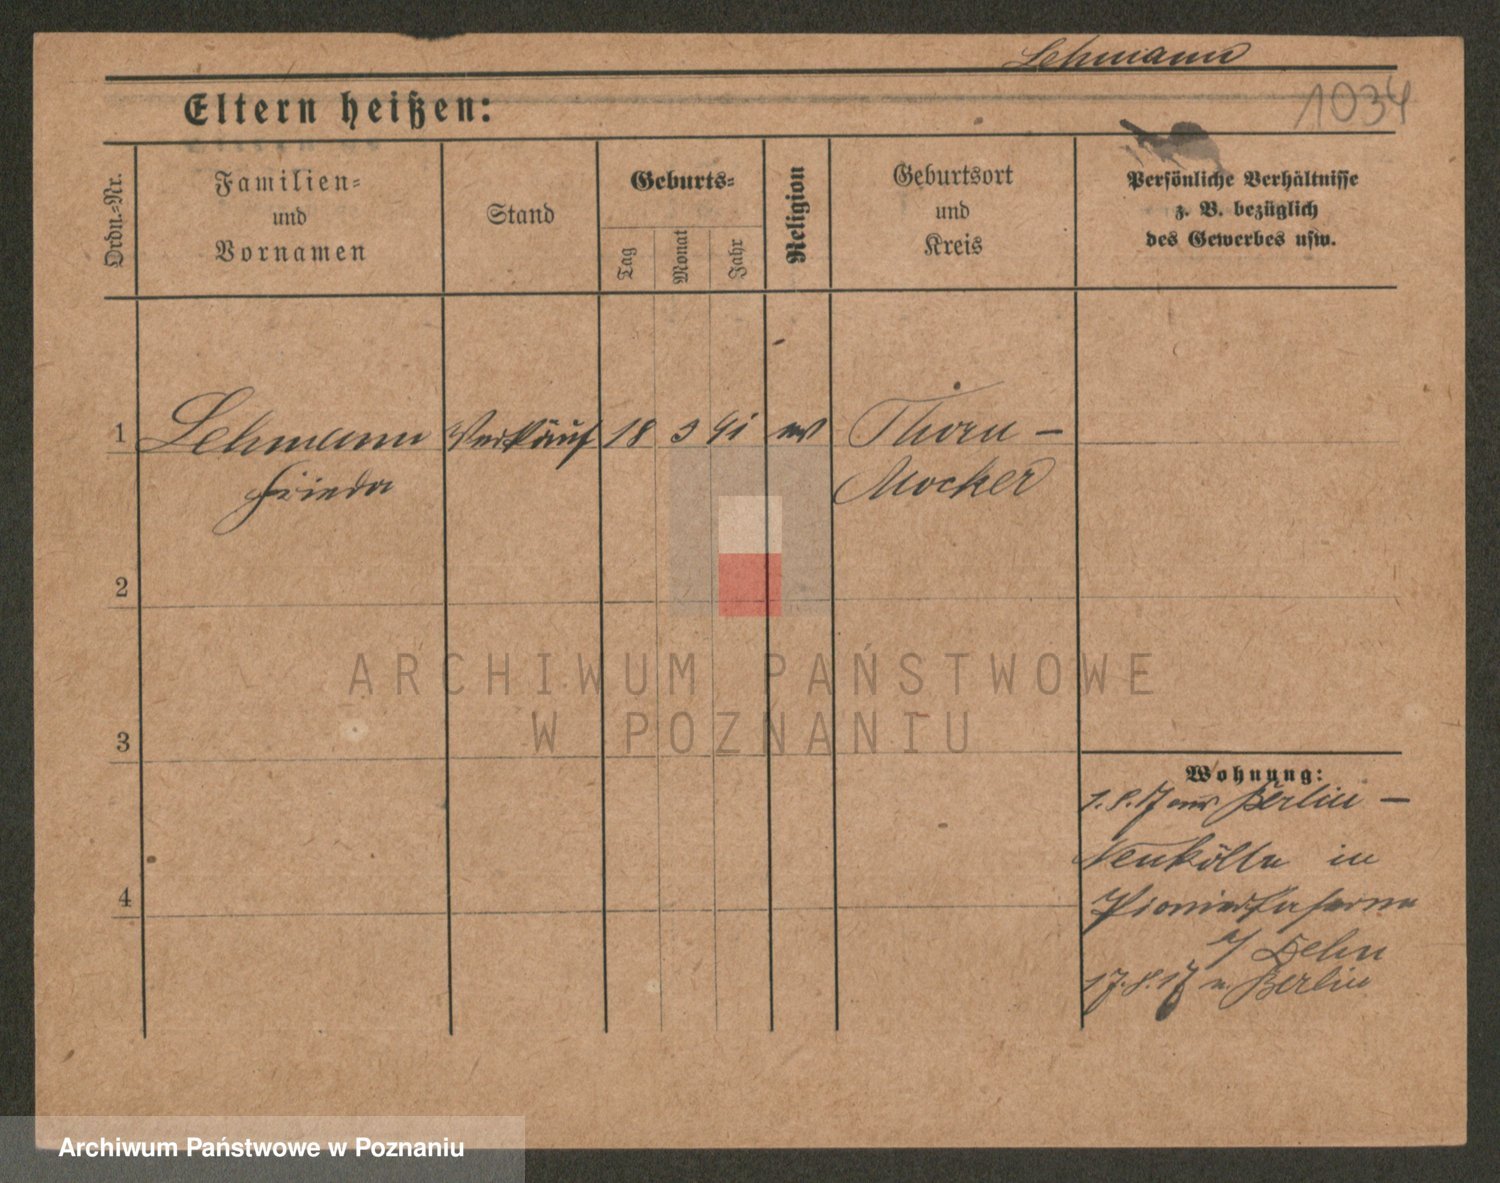 Lehmann
1034
Eltern heißen:
Ordn.-Nr.
Familien-
und
Vornamen
Stand
Geburts-
Tag
Monat
Jahr
Religion
Geburtsort
und
Kreis
Persönliche Verhältnisse
z. B. bezüglich
des Gewerbes usw.
1 Lehmann Verkäuf 18 3 91 ev Thorn -
Frieda Mocker
2
3
4
ARCHIWUM PAŃSTWOWE
W POZNANIU
Wohnung:
1.8.17 aus Berlin -
Neukölln in
Pionierkaserne
b/ Dehn
17.8.17 n. Berlin
Archiwum Państwowe w Poznaniu